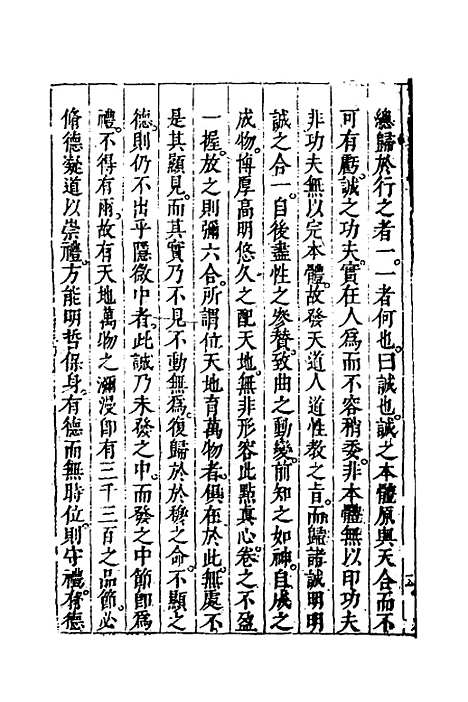 總歸於行之者一。一者何也。曰誠也。誠之本體原與天合而不
可有虧。誠之功夫。實在人爲而不容稍委。非本體無以印功夫
非功夫無以完本體。故發天道人道性教之旨。而歸諸誠明明
誠之合一。自後盡性之參贊。致曲之動變。前知之如神。自成之
成物。博厚高明悠久之配天地。無非形容此點眞心。卷之不盈
一握。放之則彌六合。所謂位天地育萬物者。俱在於此。無處不
是其顯見。而其實乃不見不動無爲。復歸於於穆之命。不顯之
德。則仍不出乎隱微中者。此誠乃未發之中。而發之中節。卽爲
禮。不得有兩。故有天地萬物之瀰漫。卽有三千三百之品節。必
脩德凝道以崇禮。方能明哲保身。有德而無時位。則守禮。有德